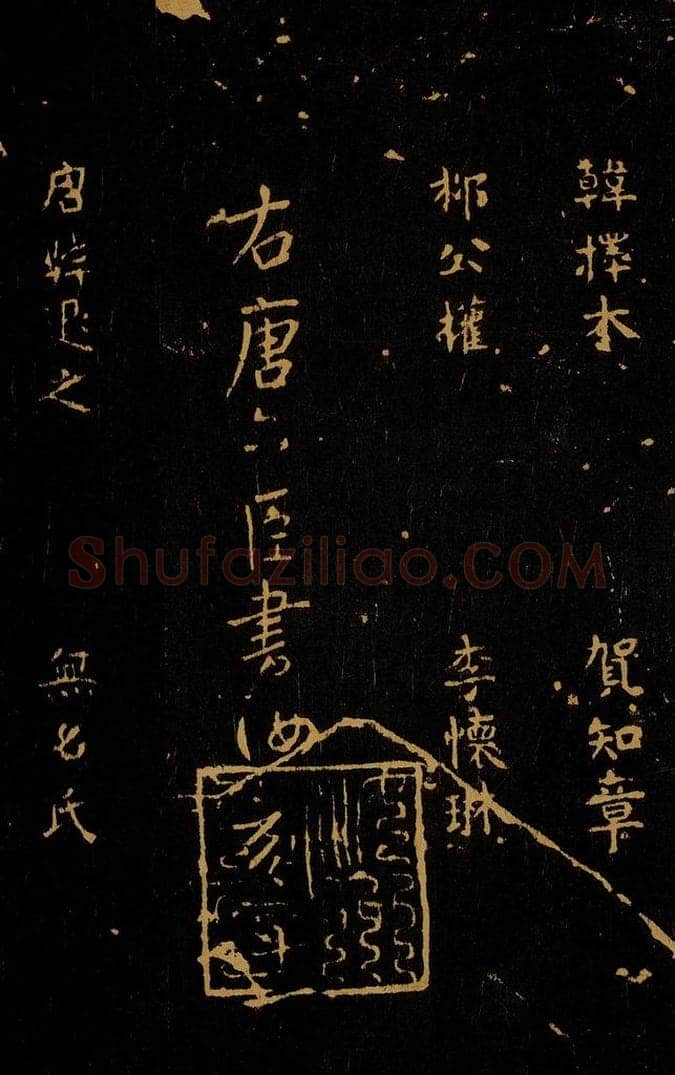 韓擇木 賀知章
柳公權 李懷琳
右唐六臣書 汝
唐韓退之 無名氏
Shufaziliao.COM